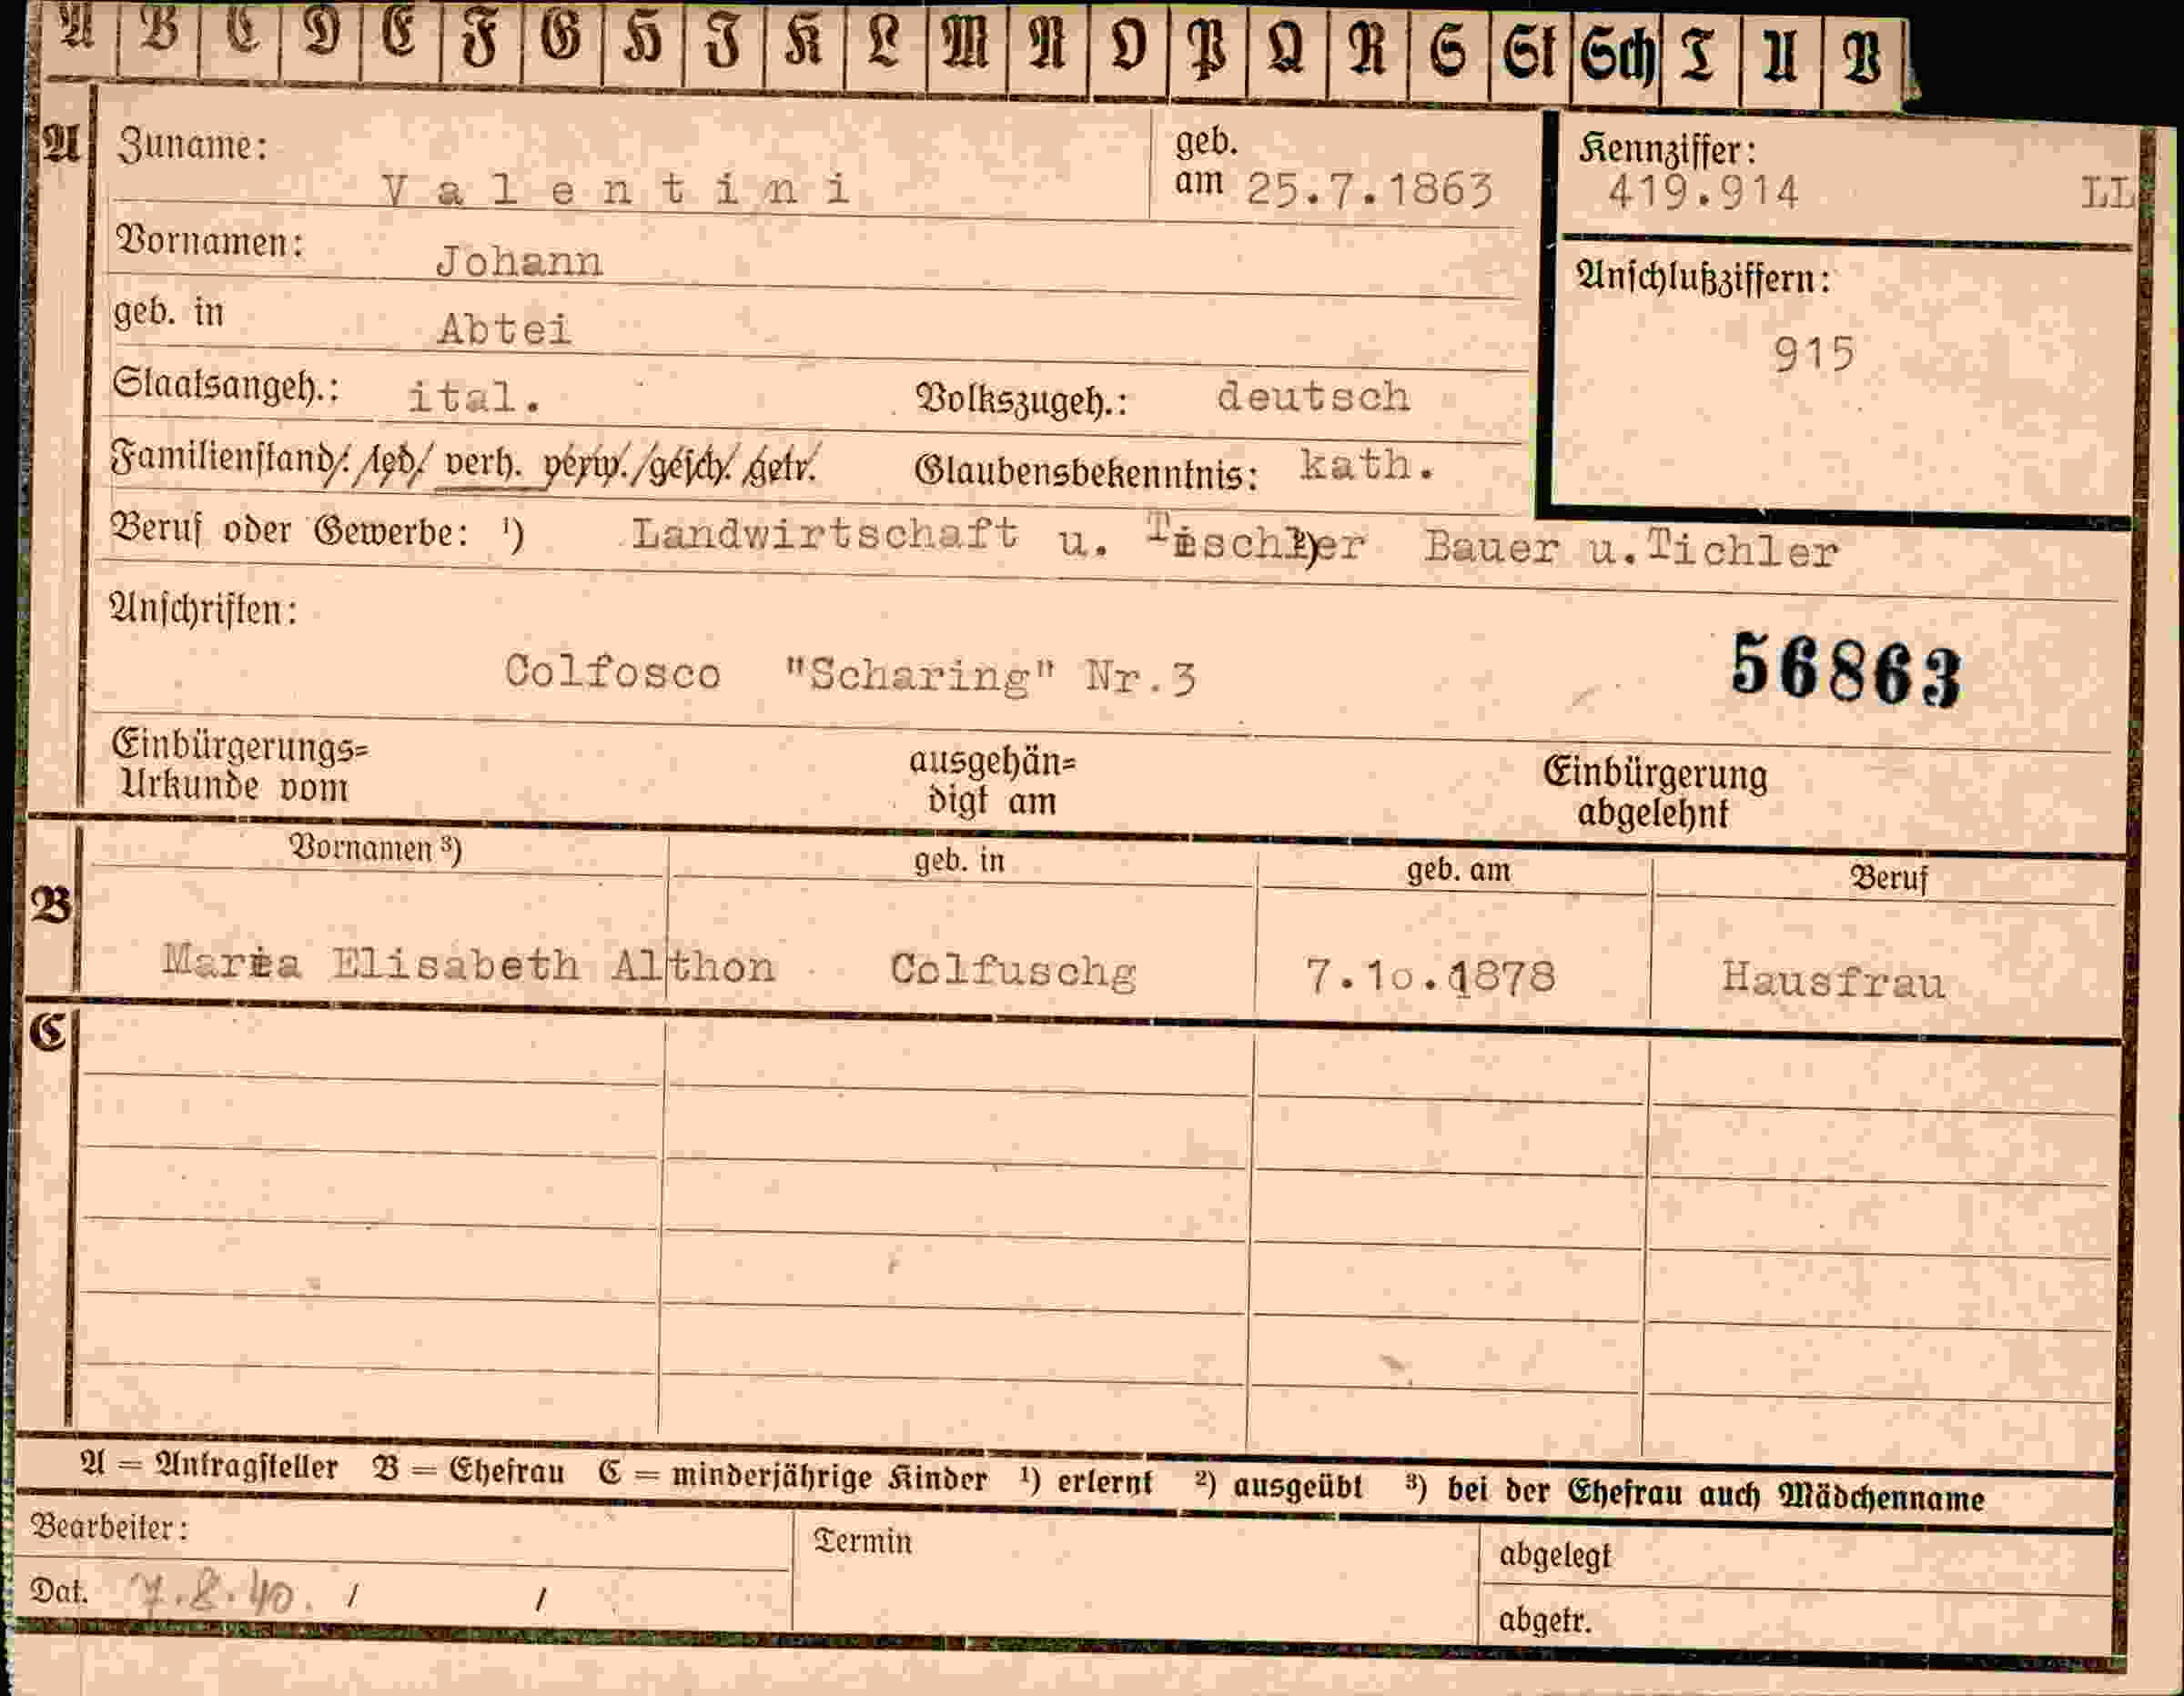 A B C D E F G H J K L M N O P Q R S St Sch T U V
A Zuname: Valentini geb. am 25.7.1863 Kennziffer: 419.914 LL
Vornamen: Johann Anschlußziffern:
geb. in Abtei 915
Staatsangeh.: ital. Volkszugeh.: deutsch
Familienstand: led. verh. verw. gesch. getr. Glaubensbekenntnis: kath.
Beruf oder Gewerbe: ¹) Landwirtschaft u. Tischler ²) Bauer u.Tichler
Anschriften:
Colfosco "Scharing" Nr.3 56863
Einbürgerungs= ausgehän= Einbürgerung
Urkunde vom digt am abgelehnt
B Vornamen ³) geb. in geb. am Beruf
Maria Elisabeth Althon Colfuschg 7.10.1878 Hausfrau
C
A = Antragsteller B = Ehefrau C = minderjährige Kinder ¹) erlernt ²) ausgeübt ³) bei der Ehefrau auch Mädchenname
Bearbeiter: Termin abgelegt
Dat. 7.8.40. / / abgetr.